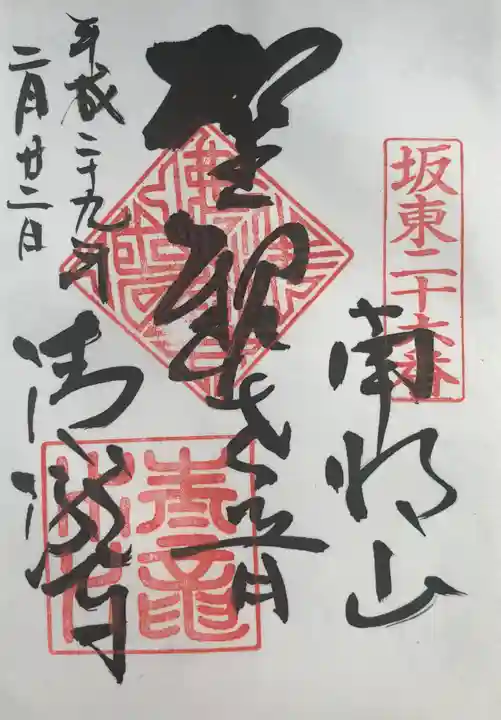 坂東二十六番
南明山
聖観世音
平成二十九年
二月廿二日
清瀧寺